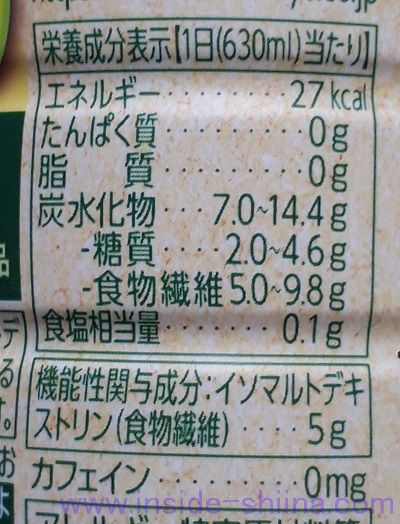 栄養成分表示【1日(630ml)当たり】
エネルギー・・・・・・・・・27kcal
たんぱく質・・・・・・・・・0g
脂　　質・・・・・・・・・0g
炭水化物・・・7.0~14.4g
-糖質・・・・2.0~4.6g
-食物繊維5.0~9.8g
食塩相当量・・・・・・・0.1g
機能性関与成分:イソマルトデキ
ストリン(食物繊維)・・・・5g
カフェイン・・・・・・・・・0mg
品
デ
る
す。
お
よ
www.inside-shiina.com